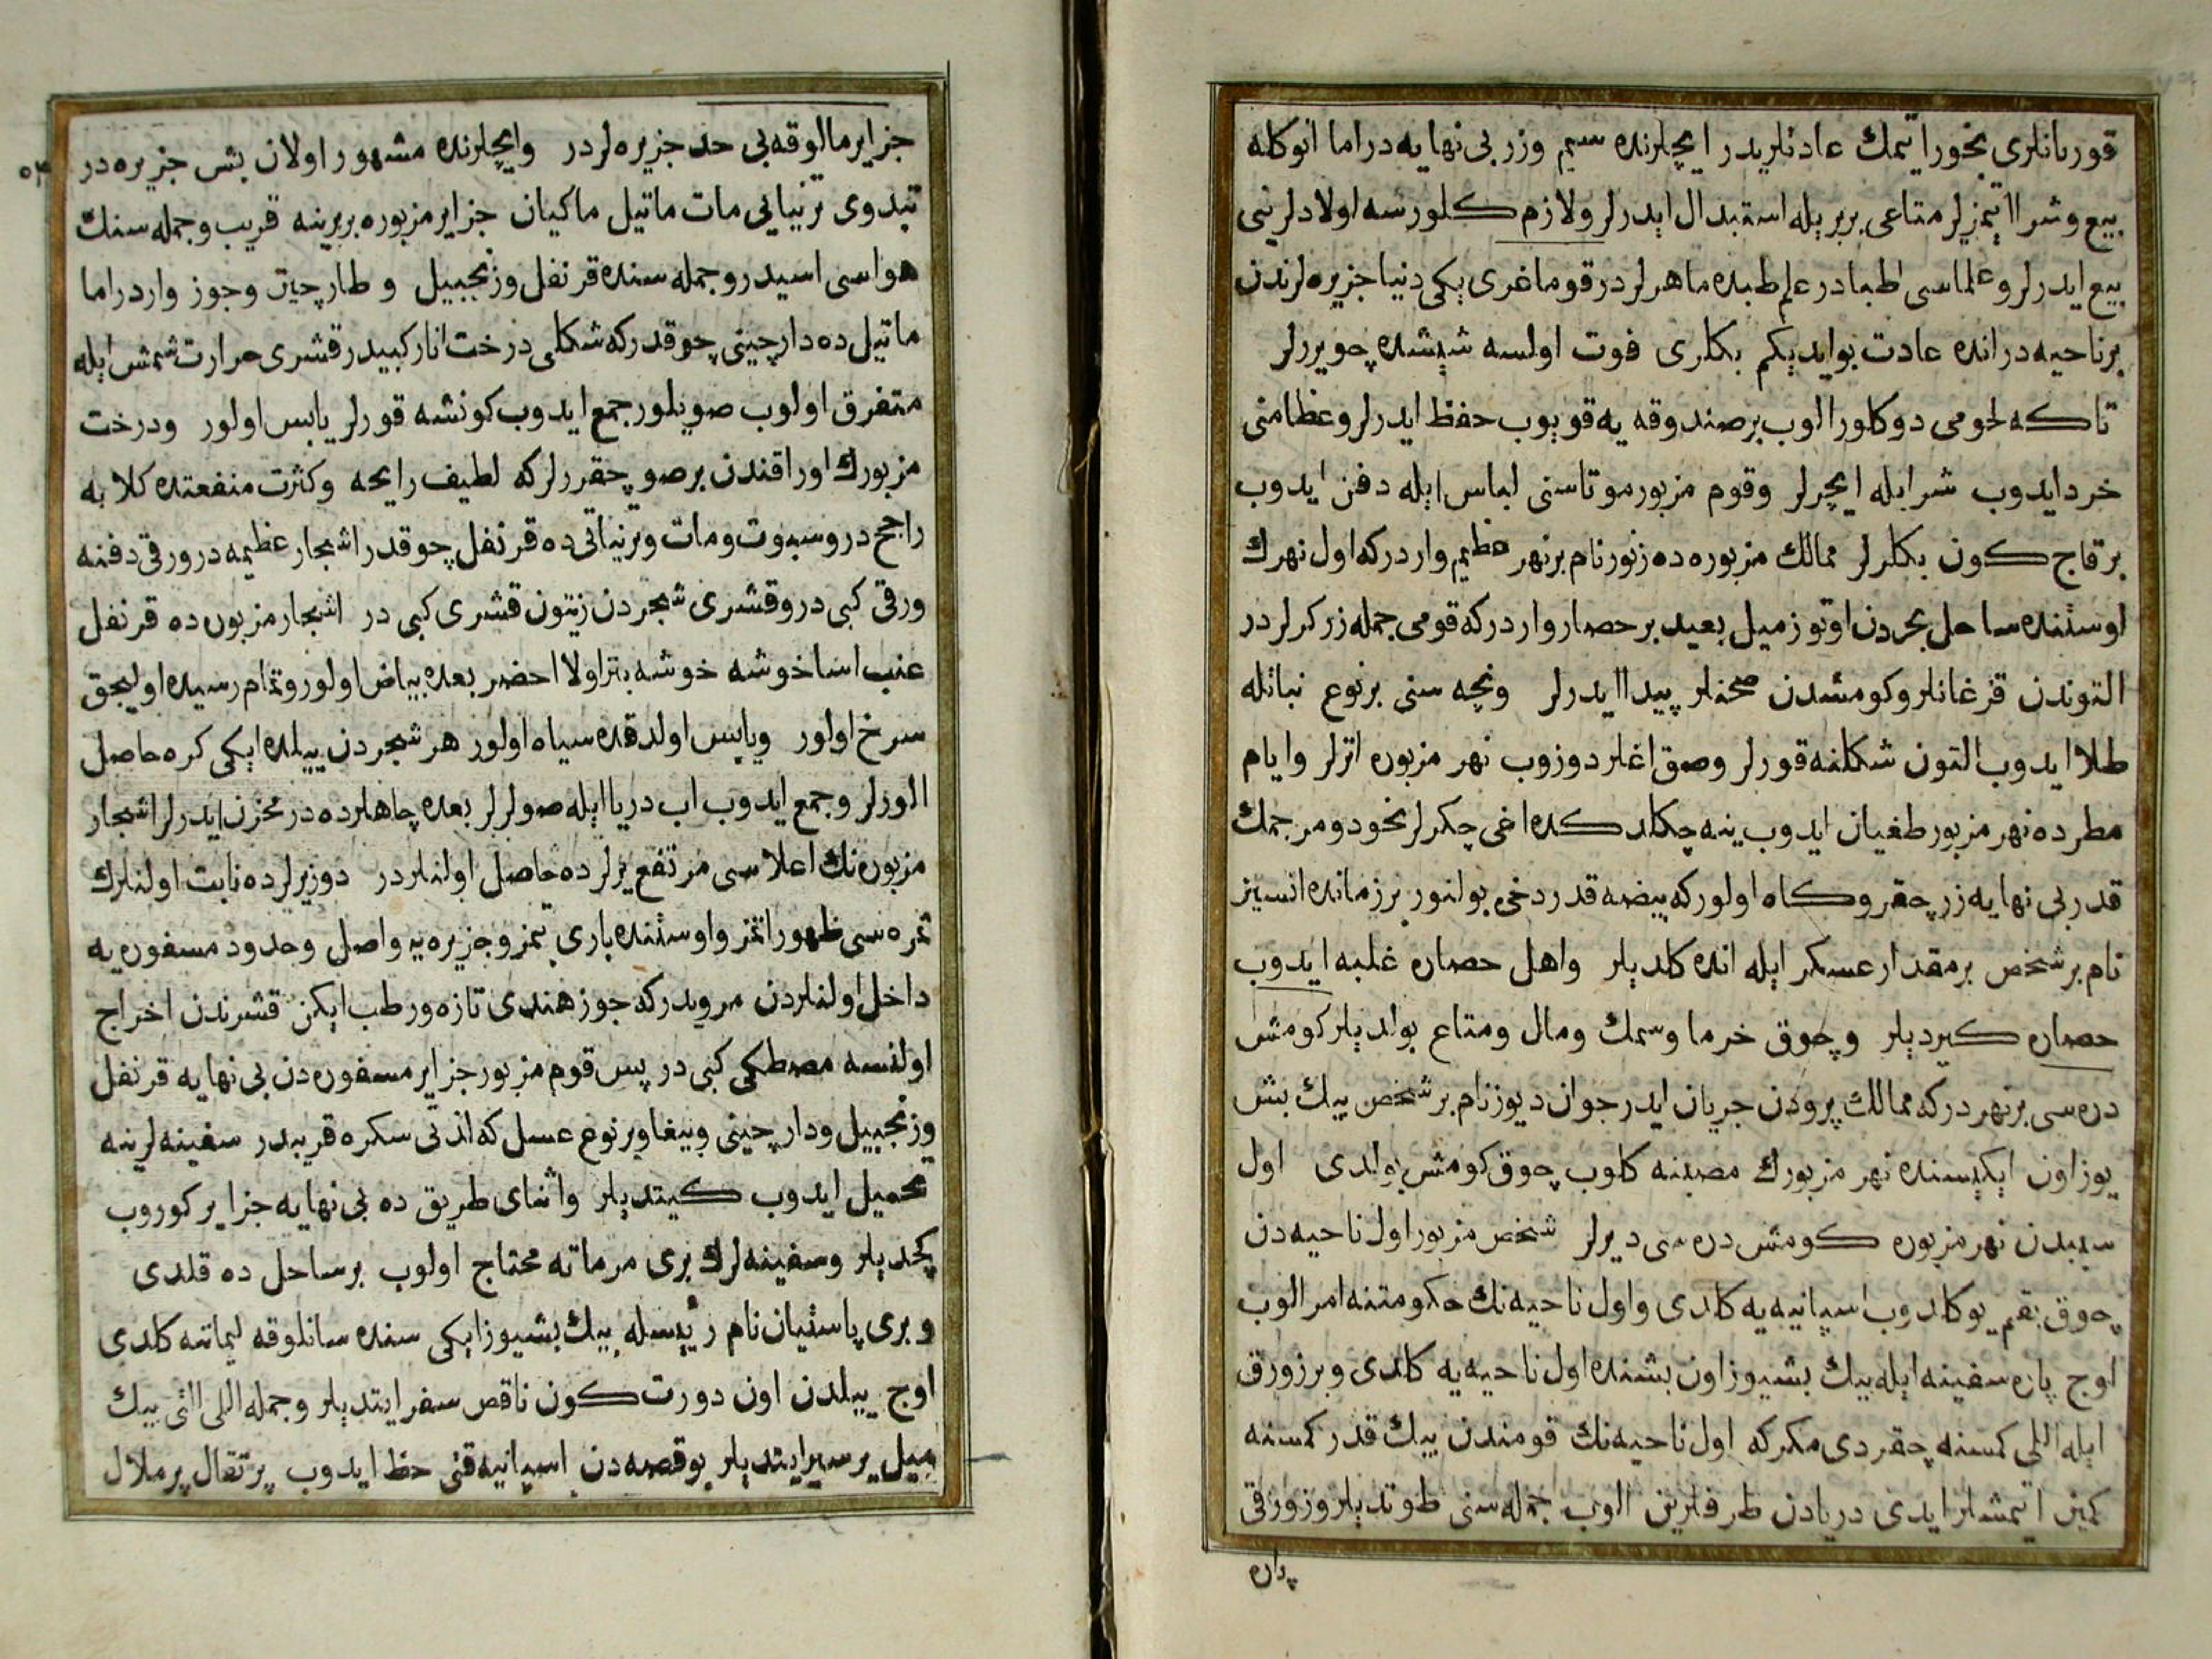 قوربانلری بخور ایتمك عادتلریدر ایچلرنده سیم وزر بی نهایه در اما انوكله
بیع وشرا ایتمزلر متاعی بربریله استبدال ایدرلر ولازم كلورسه اولادلرینی
بیع ایدرلر وعلماسی اطبادر علم طبده ماهرلر در قوماغری یكی دنیا جزیره لرندن
برناحیه در انده عادت بوایدیكم بكلری فوت اولسه شیشده چویررلر
تاكه لحومی دوكلور الوب برصندوقه یه قویوب حفظ ایدرلر وعظامنی
خرد ایدوب شرابله ایچرلر وقوم مزبور موتاسنی لباس ایله دفن ایدوب
برقاج كون بكلرلر ممالك مزبوره ده زنور نام برنهر عظیم واردركه اول نهرك
اوستنده ساحل بحردن اوتوز میل بعید برحصار واردركه قومی جمله زركرلر در
التوندن قزغانلر وكومشدن صحنلر پیدا ایدرلر ونچه سنی برنوع نباتله
طلا ایدوب التون شكلنه قورلر وصق اغلر دوزوب نهر مزبوره اترلر وایام
مطرده نهر مزبور طغیان ایدوب ینه چكلدكده اغی چكرلر نخود ومرجمك
قدر بی نهایه زر چقر وكاه اولوركه بیضه قدر دخی بولنور برزمانده انسیز
نام برشخص برمقدار عسكر ایله انده كلدیلر واهل حصاره غلبه ایدوب
حصاره كیردیلر وچوق خرما وسمك ومال ومتاع بولدیلر كومش
دره سی برنهردركه ممالك پرودن جریان ایدر جوان دیوز نام برشخص بیك بش
یوز اون ایكیسنده نهر مزبورك مصبنه كلوب چوق كومش بولدی اول
سببدن نهر مزبوره كومش دره سی دیرلر شخص مزبور اول ناحیه دن
چوق بقم یوكلدوب اسپانیه یه كلدی واول ناحیه نك حكومتنه امر الوب
اوج پاره سفینه ایله بیك بشیوز اون بشنده اول ناحیه یه كلدی وبرزورق
ایله اللی كمسنه چقردی مكركه اول ناحیه نك قومندن بیك قدر كمسنه
كمین ایتمشلر ایدی دریادن طرفلرین الوب جمله سنی طوتدیلر وزورقی
پاره
جزایر مالوقه بی حد جزیره لردر وایچلرنده مشهور اولان بش جزیره در
تیدوی ترنیاتی مات ماتیل ماكیان جزایر مزبوره بربرینه قریب وجمله سنك
هواسی اسیدر وجمله سنده قرنفل وزنجبیل و طارچین وجوز واردر اما
ماتیل ده دارچینی چوقدركه شكلی درخت انار كبیدر قشری حرارت شمش ایله
متفرق اولوب صویلور جمع ایدوب كونشه قورلر یابس اولور ودرخت
مزبورك اوراقندن برصو چقررلركه لطیف رایحه وكثرت منفعتده كلابه
راجح در وسبوت ومات وترنیاتی ده قرنفل چوقدر اشجار عظیمه در ورقی دفنه
ورقی كبی در وقشری شجردن زیتون قشری كبی در اشجار مزبوره ده قرنفل
عنب اسا خوشه خوشه بتر اولا احضر بعده بیاض اولور وتمام رسیده اولیجق
سرخ اولور ویابس اولدقده سیاه اولور هر شجردن ییلده ایكی كره حاصل
الورلر وجمع ایدوب اب دریا ایله صولرلر بعده چاهلرده در مخزن ایدرلر اشجار
مزبوره نك اعلاسی مرتفع یرلر ده حاصل اولنلردر دوز یرلر ده نابت اولنلرك
ثمره سی ظهور اتمز واوستنده باری بتمز وجزیره یه واصل وحدود مسفوره یه
داخل اولنلردن مرویدركه جوز هندی تازه ورطب ایكن قشرندن اخراج
اولنسه مصطكی كبی در پس قوم مزبور جزایر مسفوره دن بی نهایه قرنفل
وزنجبیل ودارچینی وببغا وبرنوع عسل كه اندنی سكره قریبدر سفینه لرینه
تحمیل ایدوب كیتدیلر واثنای طریق ده بی نهایه جزایر كوروب
كچدیلر وسفینه لرك بری مرماته محتاج اولوب برساحل ده قلدی
وبری پاستیان نام رئیسله بیك بشیوز ایكی سنده سانلوقه لیماننه كلدی
اوج ییلدن اون دورت كون ناقص سفر ایتدیلر وجمله اللی التی بیك
میل یر سیر ایتدیلر بوقصه دن اسپانیه قتی حظ ایدوب پرتقال پرملال